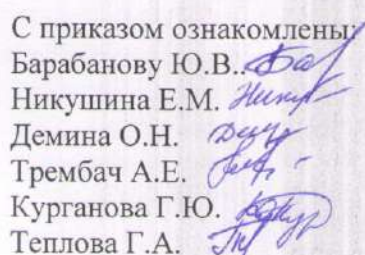 С приказом ознакомлены:
Барабанову Ю.В..
Никушина Е.М.
Демина О.Н.
Трембач А.Е.
Курганова Г.Ю.
Теплова Г.А.